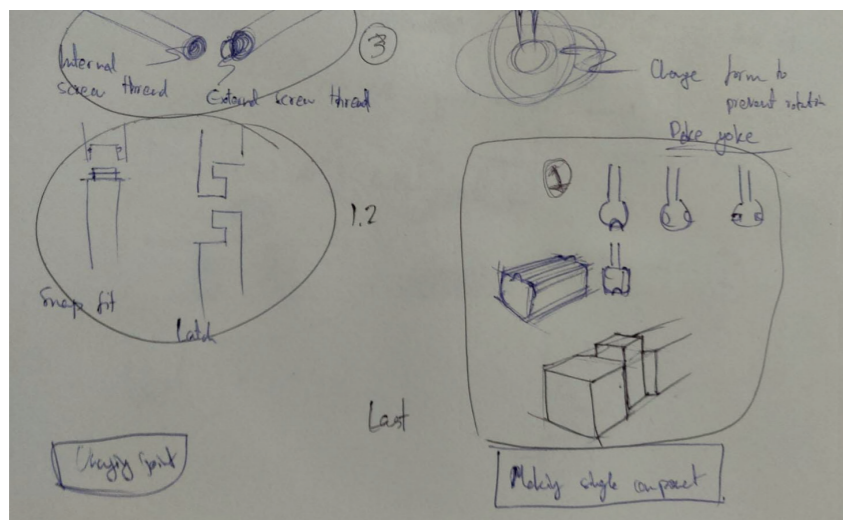 3
Internal
screw thread
External screw thread
Change form to
prevent rotation
Poke yoke
1
1.2
Snap fit
Latch
Last
Making single component